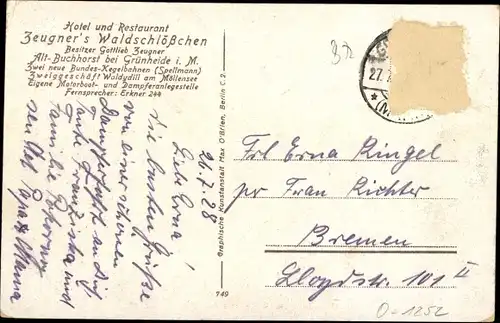 Hotel und Restaurant
Zeugner's Waldschlößchen
Besitzer Gottlieb Zeugner
Alt-Buchhorst bei Grünheide i. M.
Zwei neue Bundes-Kegelbahnen (Spellmann)
Zweiggeschäft Waldydill am Möllensee
Eigene Motorboot- und Dampferanlegestelle
Fernsprecher: Erkner 244
26.7.28
Liebe Erna!
Die besten Grüße
von einer schönen
Dampferfahrt an Dich
Tante Franziska und
Familie
sen Papa & Mama
Graphische Kunstanstalt Max O'Brien, Berlin C. 2.
749
27.
Frl Erna Ringel
pr Frau Richter
Bremen
Lloydstr. 101 II
O-1252